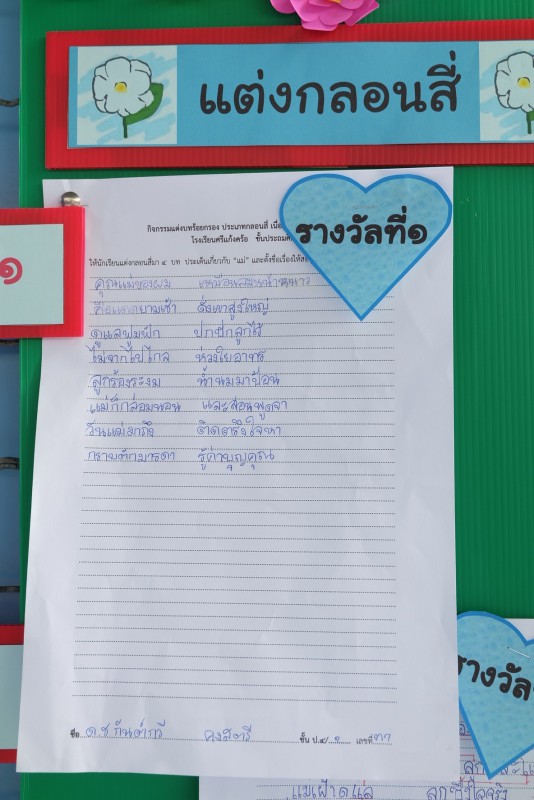 แต่งกลอนสี่
๑
รางวัลที่๑
กิจกรรมแต่งบทร้อยกรอง ประเภทกลอนสี่
โรงเรียนศรีแก้งคร้อ ชั้นประถมศึ
ให้นักเรียนแต่งกลอนสี่มา ๔ บท ประเด็นเกี่ยวกับ "แม่" และตั้งชื่อเรื่องให้
คุณแม่ของผม เหมือน หนาว
ยามเช้า ดั่งเขาสูงใหญ่
ดูแลฟูมฟัก ปกปักลูกไว้
ไม่จากไปไกล ห่วงใยอาทร
ลูกร้องระงม น้ำนมมาป้อน
แม่ก็กล่อมนอน และสอนพูดจา
วันแม่มาถึง ติดตรึงใจหา
กราบตักมารดา รู้ค่าบุญคุณ
ชื่อ ด.ช กันต์กวี ชั้น ป.๔/ เลขที่
รางวัล
แม่เฝ้าดูแล